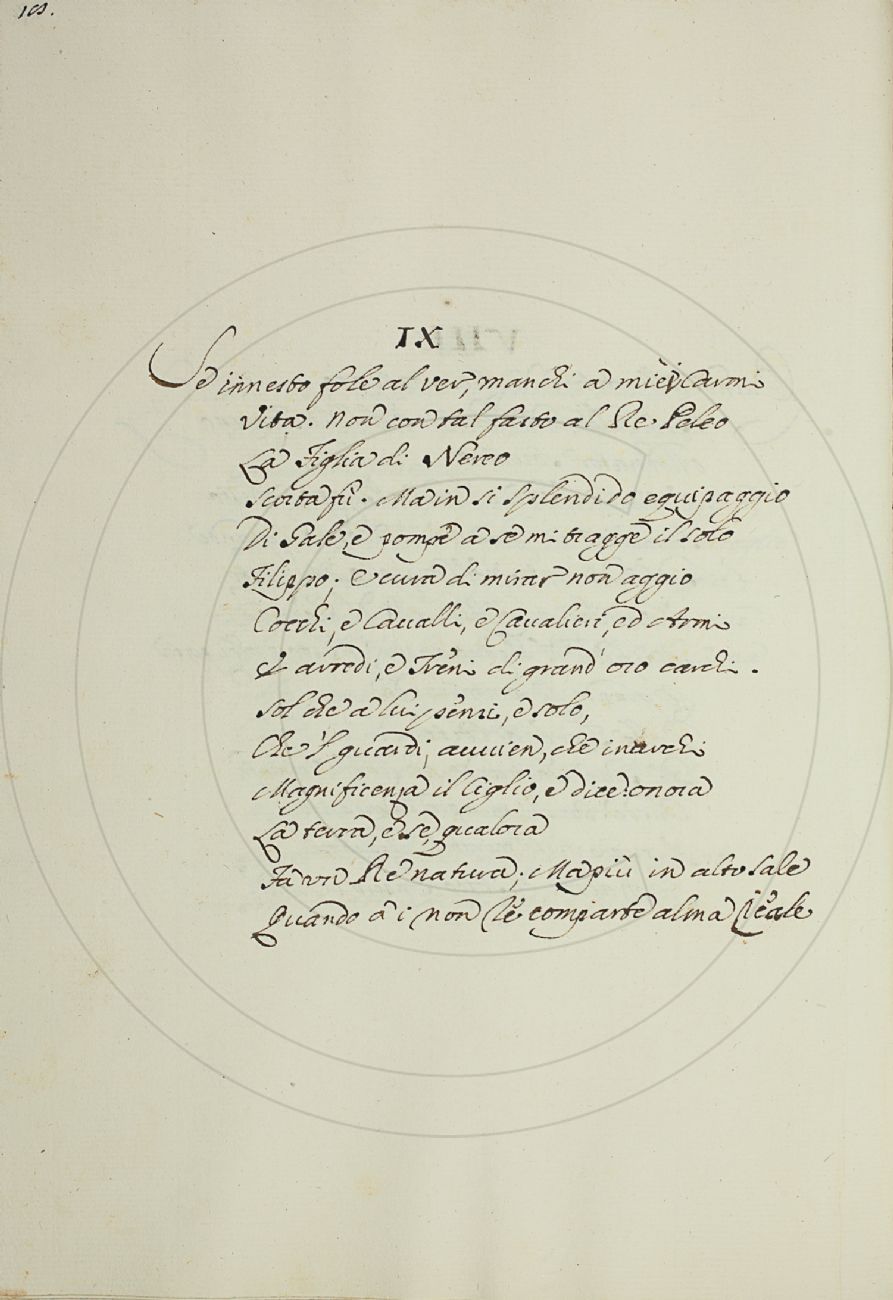 103.
IX
Se innesto fole al ver, manchi a miei Carmi
Vita. Non con tal fasto al Re Peleo
La Figlia di Nereo
Scorta fù. Ma in si splendido equipaggio
Di Gale, e pompe a se mi tragge il solo
Filippo; e cura di mirar non aggio
Cocchi, e Cavalli, e Cavalieri, ed Armi
E arredi, e Treni di grand' oro carchi.
Sol che a lui pensi, e solo,
Che 'l guardi, avvien, che inarchi
Magnificenza il Ciglio, e dice: onora
La terra, e se, qualora
Fa un Re natura; Ma più in alto sale
Quando a i non Re comparte alma Reale